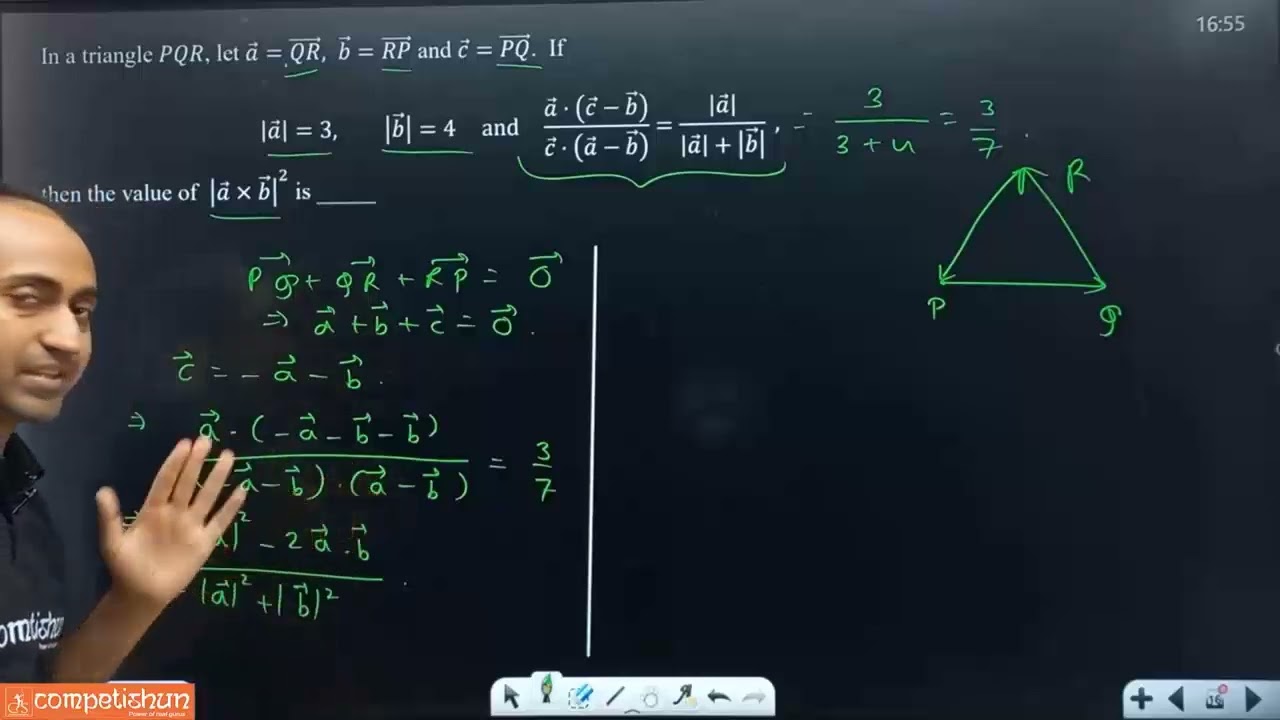 16:55
In a triangle PQR, let a⃗ = QR⃗, b⃗ = RP⃗ and c⃗ = PQ⃗. If
|a⃗| = 3, |b⃗| = 4 and a⃗ · (c⃗ − b⃗) / c⃗ · (a⃗ − b⃗) = |a⃗| / |a⃗| + |b⃗| , = 3 / 3 + 4 = 3 / 7 .
then the value of |a⃗ × b⃗|² is _____
R
P
Q
PQ⃗ + QR⃗ + RP⃗ = 0⃗
⇒ a⃗ + b⃗ + c⃗ = 0⃗ .
c⃗ = − a⃗ − b⃗ .
⇒ a⃗ · ( − a⃗ − b⃗ − b⃗ ) / a⃗ − b⃗ ) · ( a⃗ − b⃗ ) = 3 / 7
⇒ a⃗|² − 2 a⃗ · b⃗ / − |a⃗|² + | b⃗ |²
competishun
Power of real gurus
16